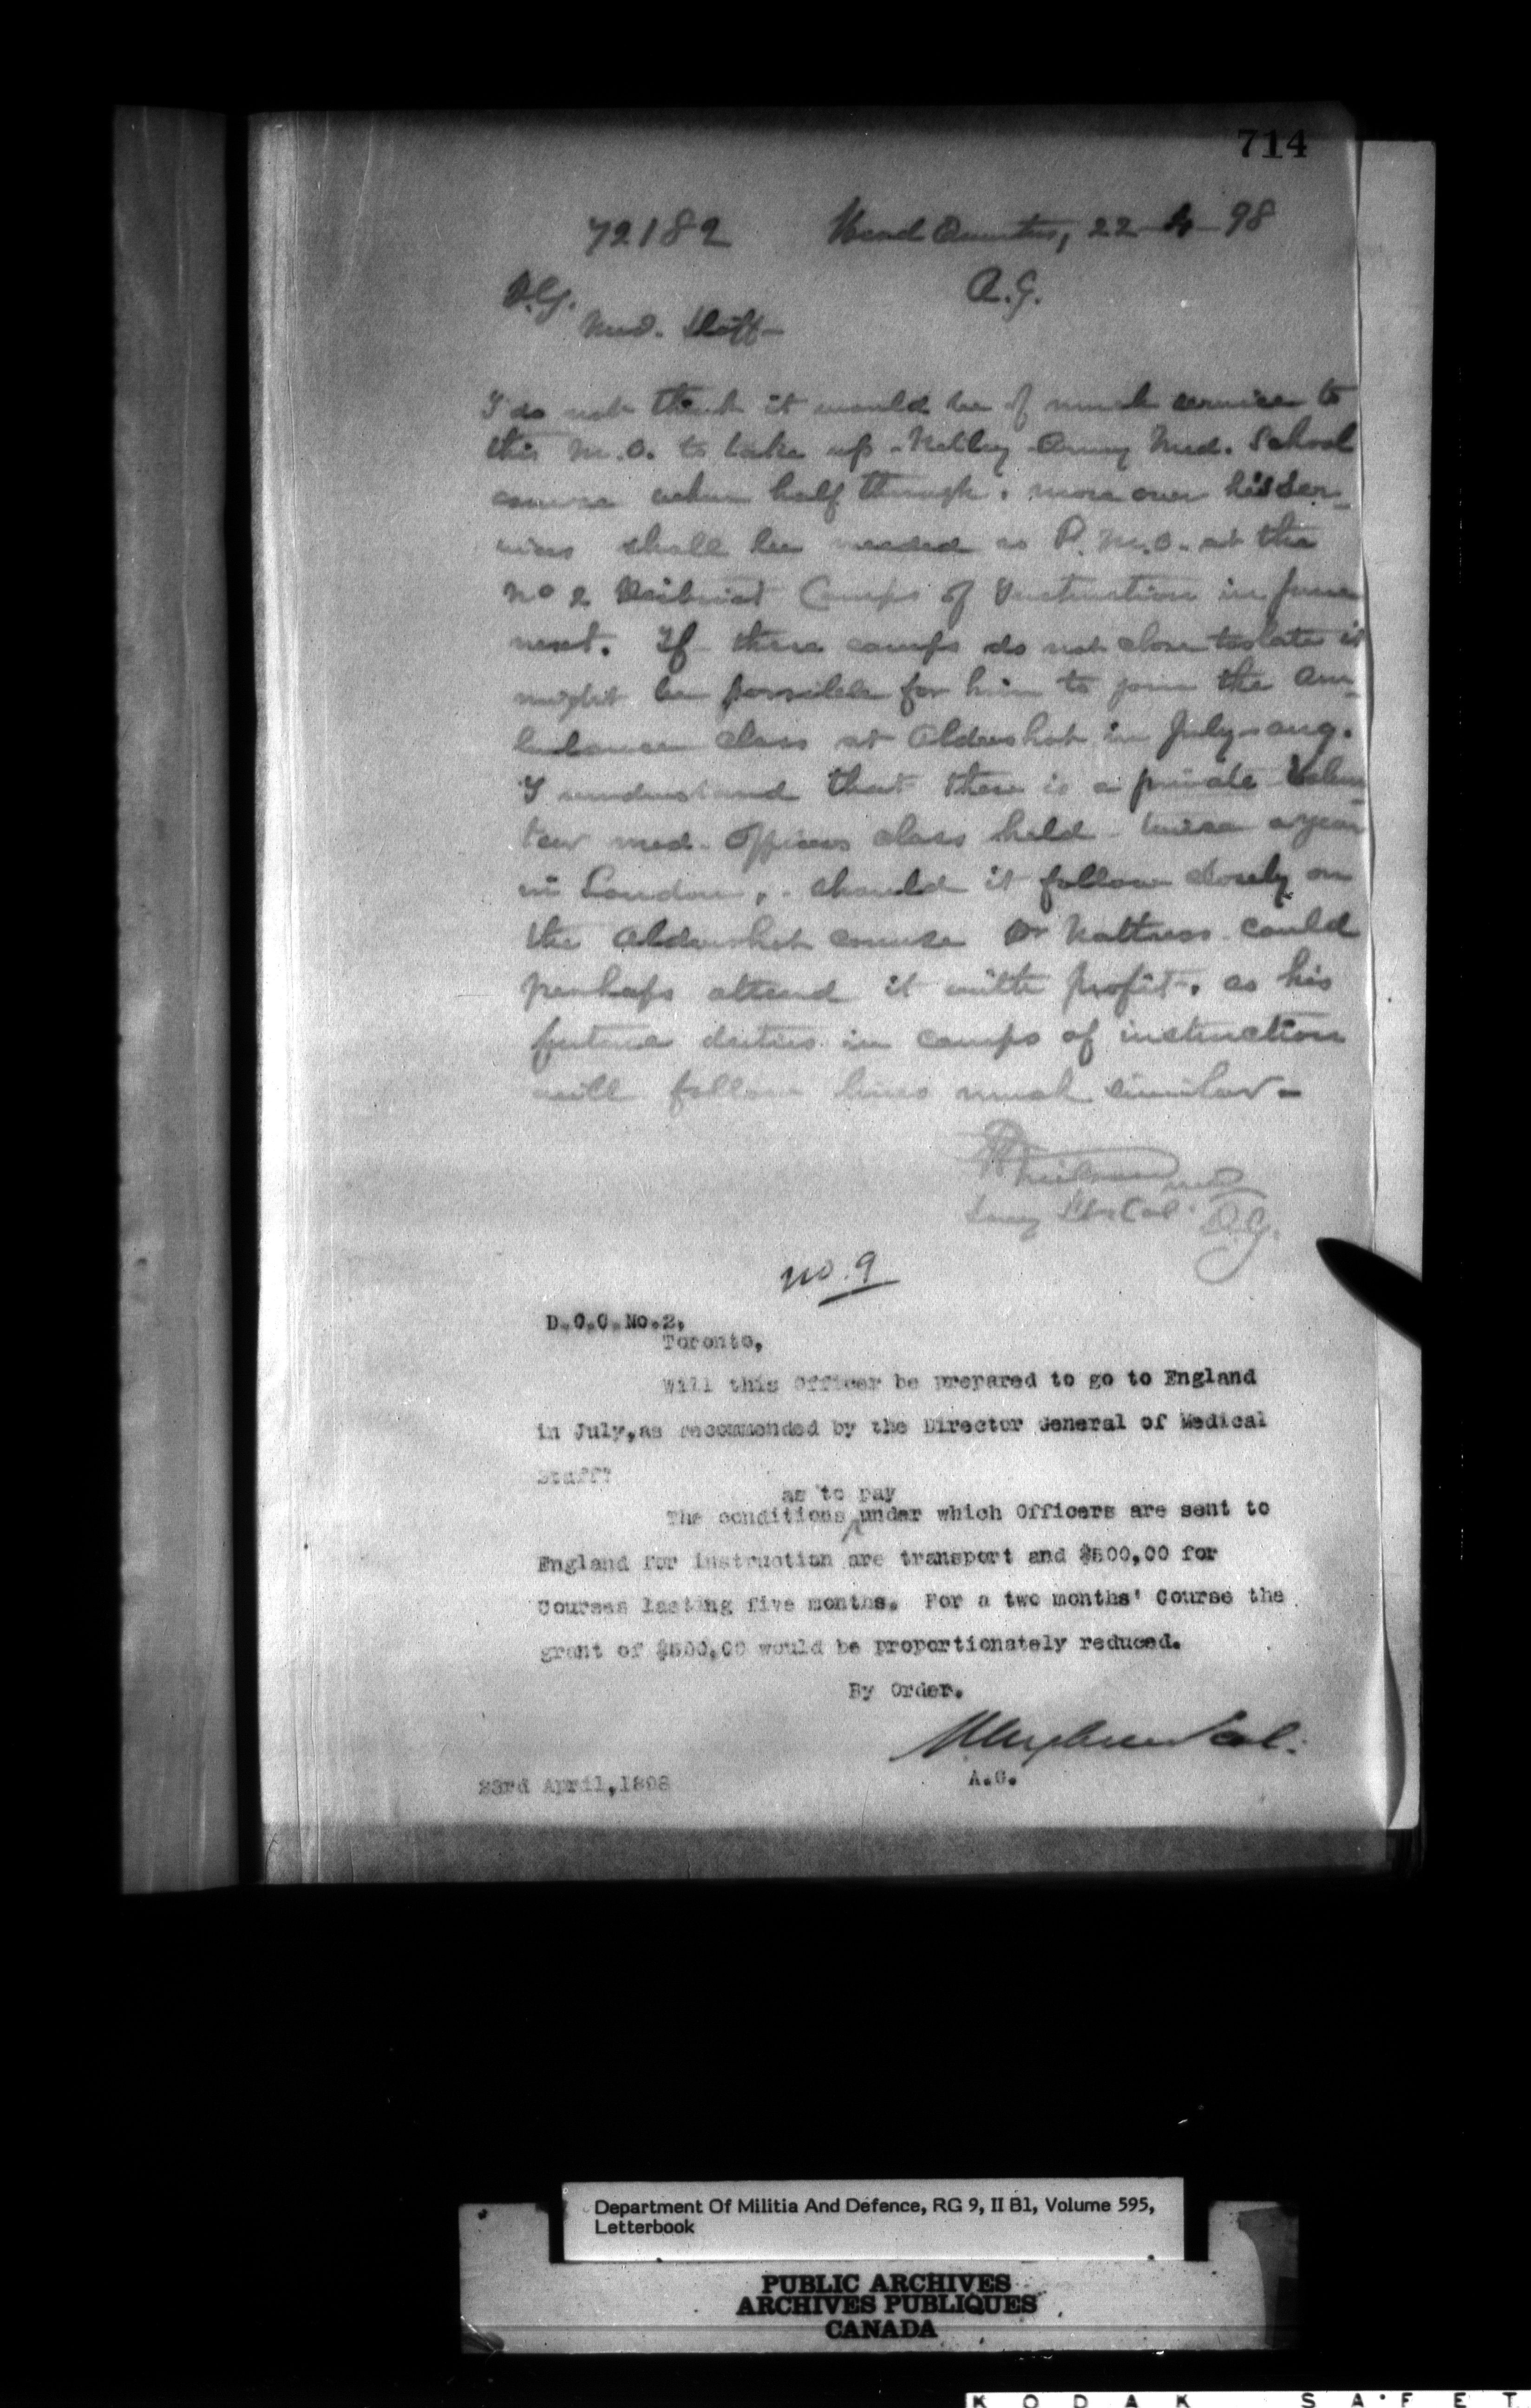 714
72182 Head Quarters, 22-4-98
D.G. A.G.
Med. Staff-
I do not think it would be of much service to
this M.O. to take up - Netley Army Med. School
course when half through. more over his ser-
vices shall be needed as P.M.O. at the
No 2 District Camps of Instruction in June
next. If these camps do not close too late it
might be possible for him to join the am-
bulance class at Aldershot in July-Aug.
I understand that there is a private Volun-
teer med. Officers class held twice a year
in London, . should it follow closely on
the Aldershot course Dr Nattress could
perhaps attend it with profit. as his
future duties in camps of instruction
will follow lines much similar-
Neilson
Lt Col. D.G.
No. 9
D.O.C. No.2,
Toronto,
Will this Officer be prepared to go to England
in July,as recommended by the Director General of Medical
Staff?
as to pay
The conditions under which Officers are sent to
England for instruction are transport and $500,00 for
Courses lasting five months. For a two months' Course the
grant of $500,00 would be proportionately reduced.
By Order.
Col.
23rd April,1898 A.G.
Department Of Militia And Defence, RG 9, II B1, Volume 595,
Letterbook
PUBLIC ARCHIVES
ARCHIVES PUBLIQUES
CANADA
KODAK SAFET